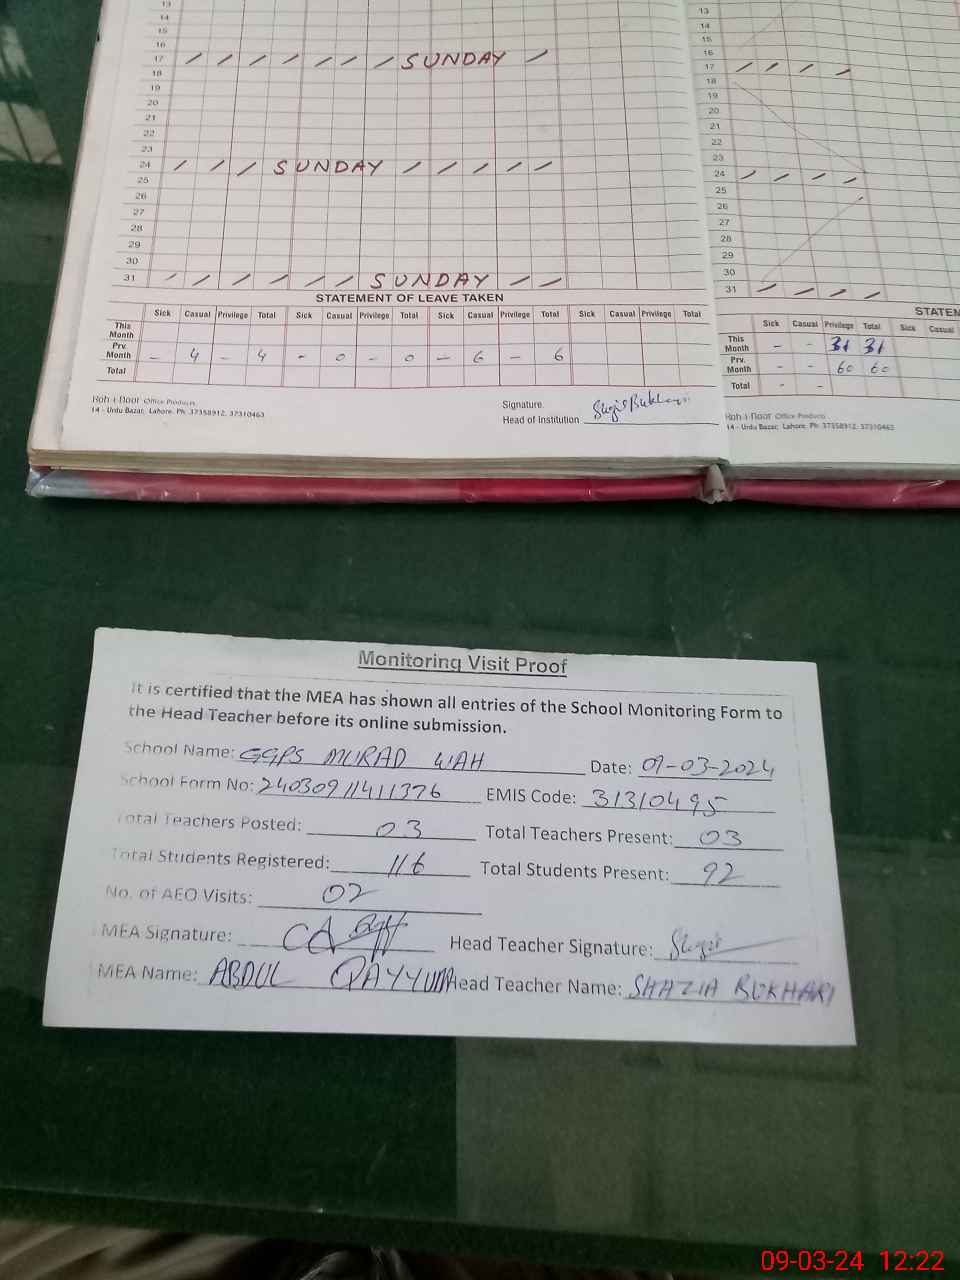 13
14
15
16
17 SUNDAY
18
19
20
21
22
23
24 SUNDAY
25
26
27
28
29
30
31 SUNDAY
STATEMENT OF LEAVE TAKEN
Sick Casual Privilege Total Sick Casual Privilege Total Sick Casual Privilege Total Sick Casual Privilege Total
This Month
Prv. Month - 4 - 4 - 0 - 0 - 6 - 6
Total
Koh-i-noor Office Products
14 - Urdu Bazar, Lahore. Ph: 37358912, 37310463
Signature.
Head of Institution
13
14
15
16
17
18
19
20
21
22
23
24
25
26
27
28
29
30
31
STATEM
Sick Casual Privilege Total Sick Casual
This Month - - 31 31
Prv. Month - - 60 60
Total - -
Koh-i-noor Office Products
14 - Urdu Bazar, Lahore. Ph: 37358912, 37310463
Monitoring Visit Proof
It is certified that the MEA has shown all entries of the School Monitoring Form to
the Head Teacher before its online submission.
School Name: GGPS MURAD WAH Date: 09-03-2024
School Form No: 24030911411376 EMIS Code: 31310495
Total Teachers Posted: 03 Total Teachers Present: 03
Total Students Registered: 116 Total Students Present: 92
No. of AEO Visits: 02
MEA Signature: Head Teacher Signature:
MEA Name: ABDUL QAYYUM Head Teacher Name: SHAZIA BUKHARI
09-03-24 12:22